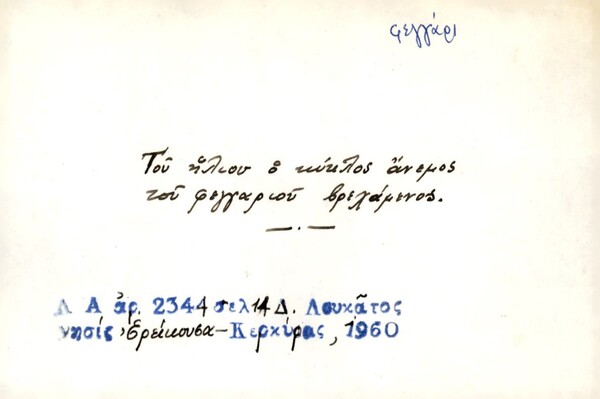 φεγγάρι
Τοῦ ἥλιου ὁ κύκλος ἄνεμος
τοῦ φεγγαριοῦ βρεχάμενος.
Λ Α ἀρ. 2344 σελ 14 Δ. Λουκᾶτος
νησίς Ἐρείκουσα-Κερκύρας, 1960